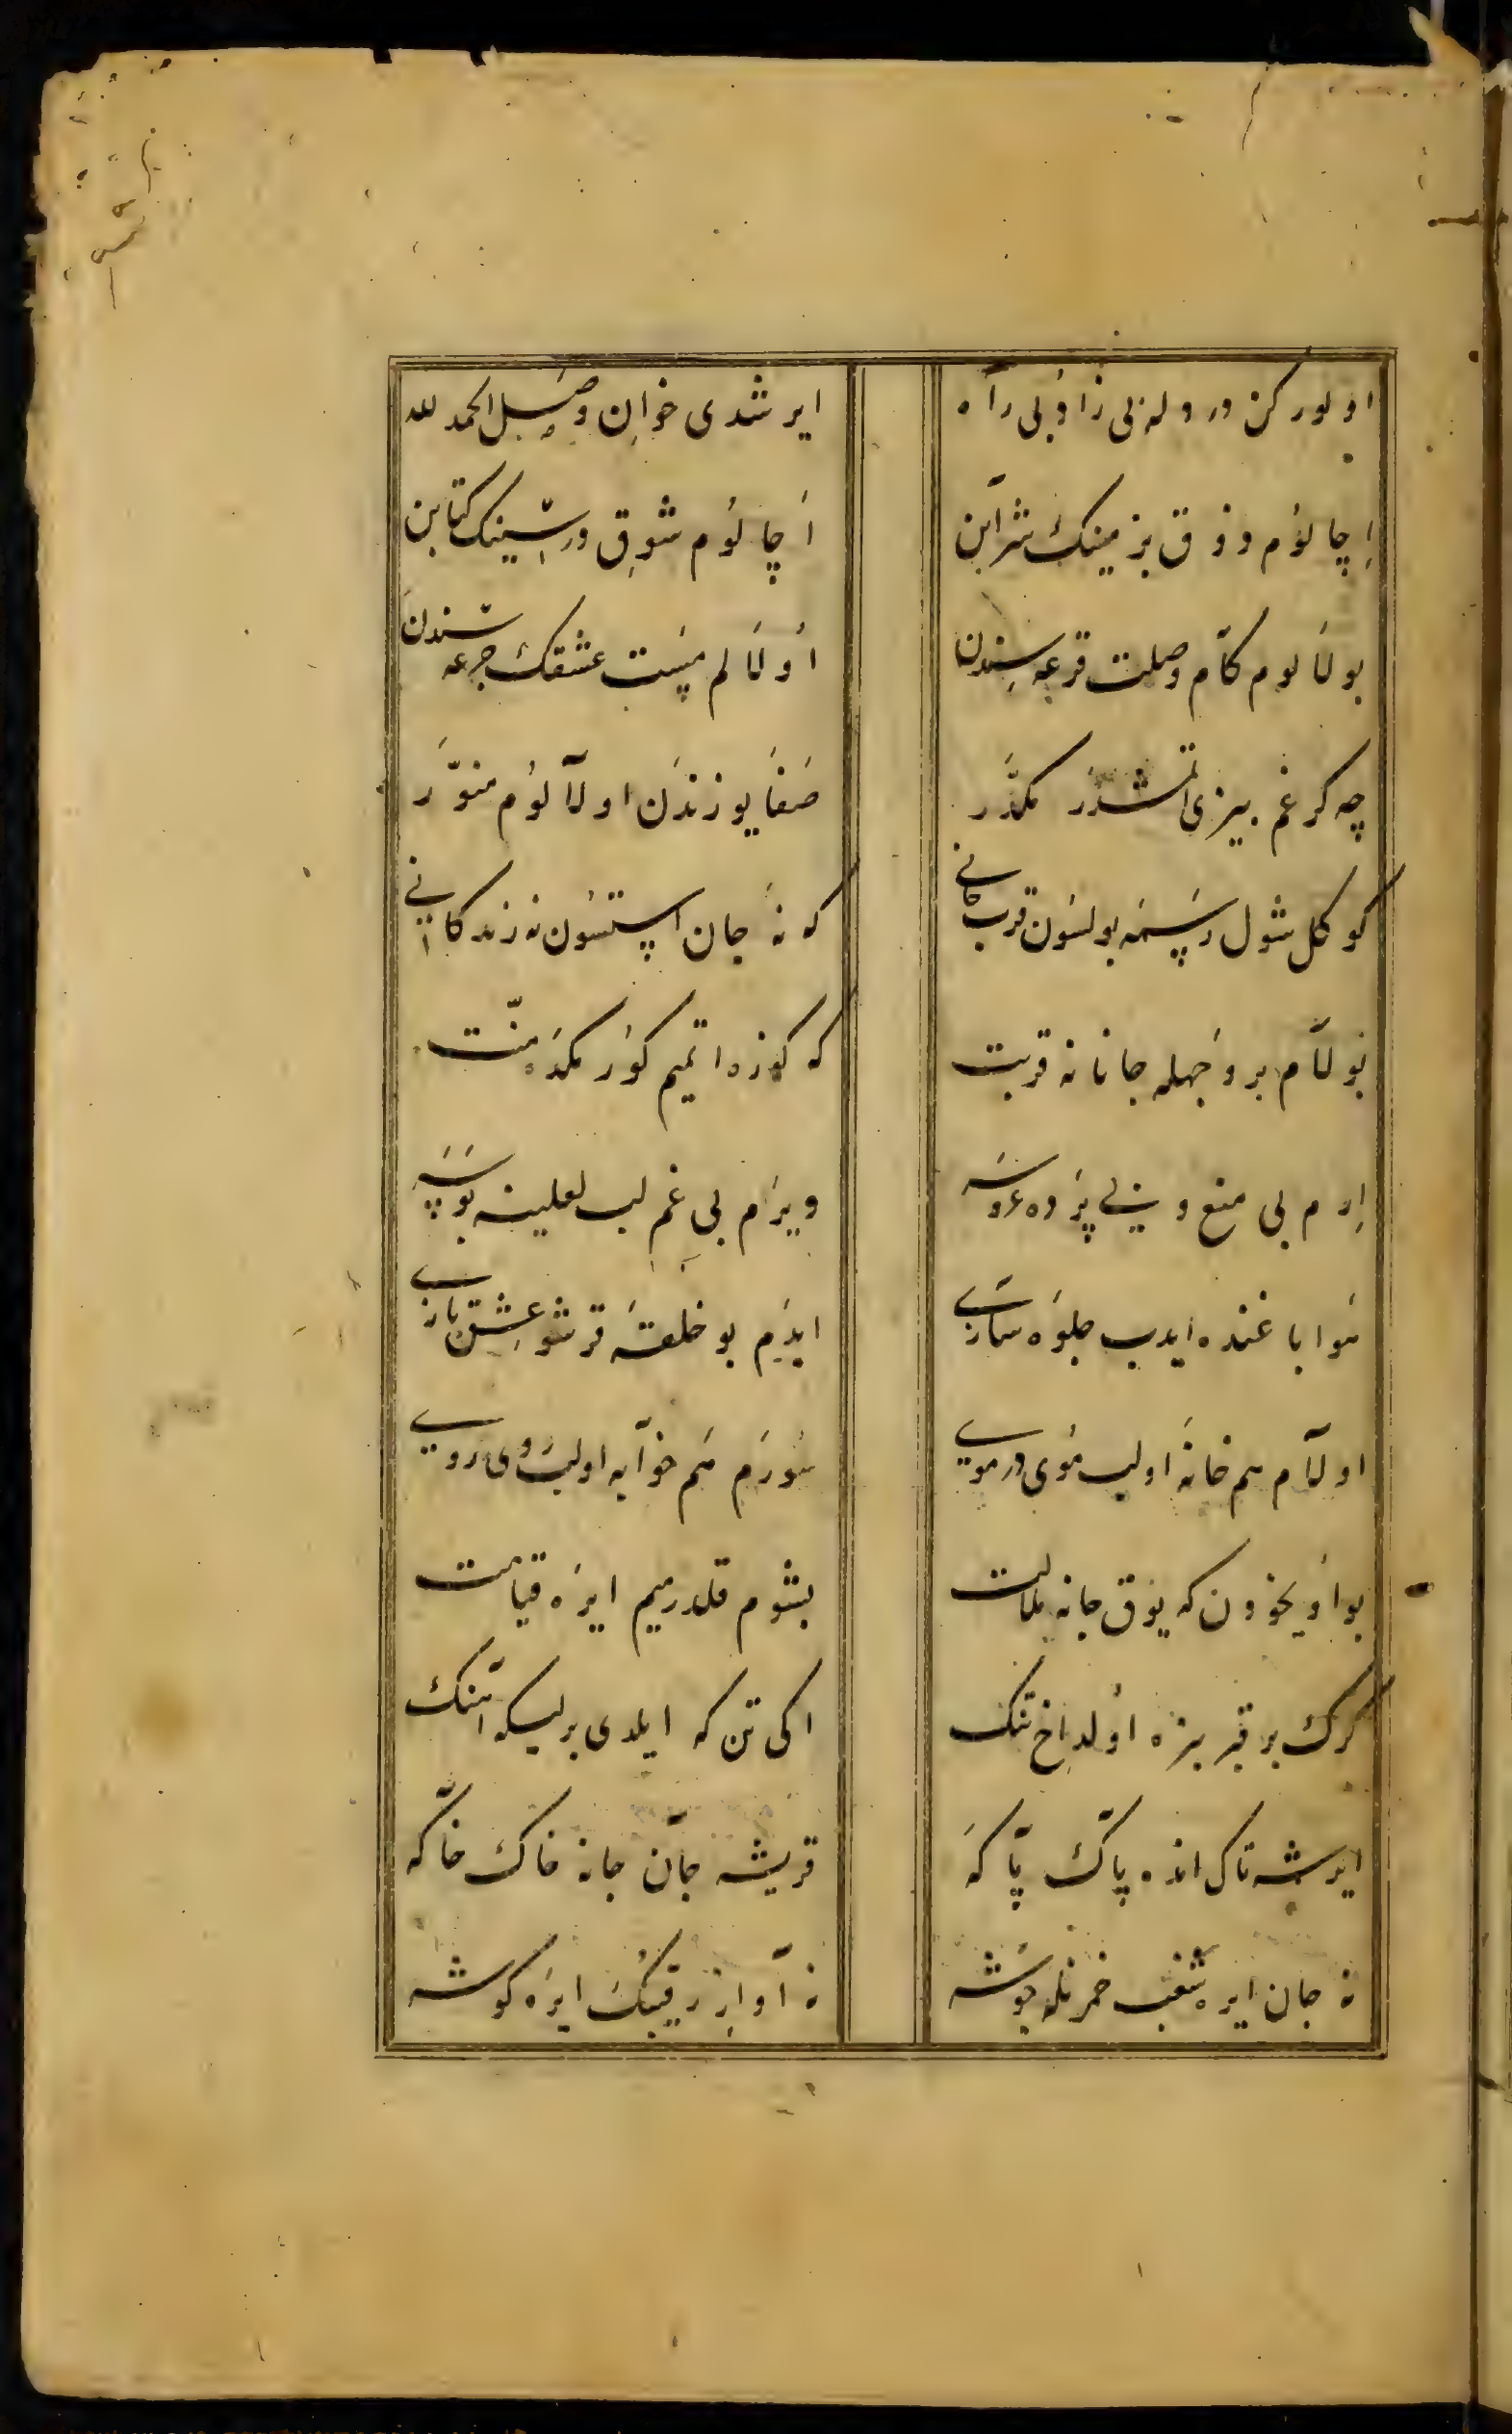 اولوركن دردله بی زاد و بی راه ایرشدی خوان وصل الحمد لله
اِچالُوم ذوق بزمینك شرابن اَچالُوم شوق درسینك كتابن
بولَالوم كام وصلت قرعه‌سندن اُولَالم مست عشقك جرعه‌سندن
چه كر غم بیزی اتمشدر مكدّر صَفَا یوزندَن اولالُوم منوّر
كوكل شول رسمه بولسُون قرب جانی كه نَه جان استسُون نه زندكانی
بُولَام بر وَجهله جانانه قربت كه كوزه اتمیم كوُرمكدَه منّت
اِرم بی منع و بی پرده عروسه ویرَم بی غم لب لعلینه بُوسَه
ایدَیم بو خلعتَه قرشو عِشق بازی
اولَام هم خانَه اولب مُوی در موی سُورَم هم خوابه اولب رُوی در روی
بو اُویخودن كه یوق جانه ملالت بشوم قلدرمیم ایرَه قیامت
كرك بر قبر بزه اُولداِخ تنك اكی تن كه ایلدی بر لیكه آهنك
ایرشه تاكی انده پاك پاكَه قریشه جان جانه خاك خاكه
نَه جان ایره شغب خمرنله جوشه نه آواز رقیبُك ایرَه كوشه